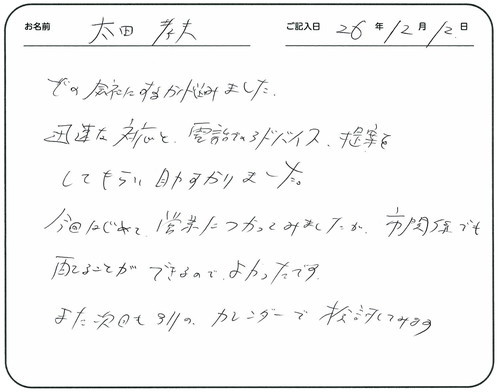 お名前 太田 孝夫 ご記入日 26 年 12 月 12 日
どの会社にするか悩みました。
迅速な対応と、電話でのアドバイス、提案を
してもらい助かりました。
今回はじめて、営業につかってみましたが、市関係でも
配ることができるので、よかったです。
また次回も別の、カレンダーで検討してみます